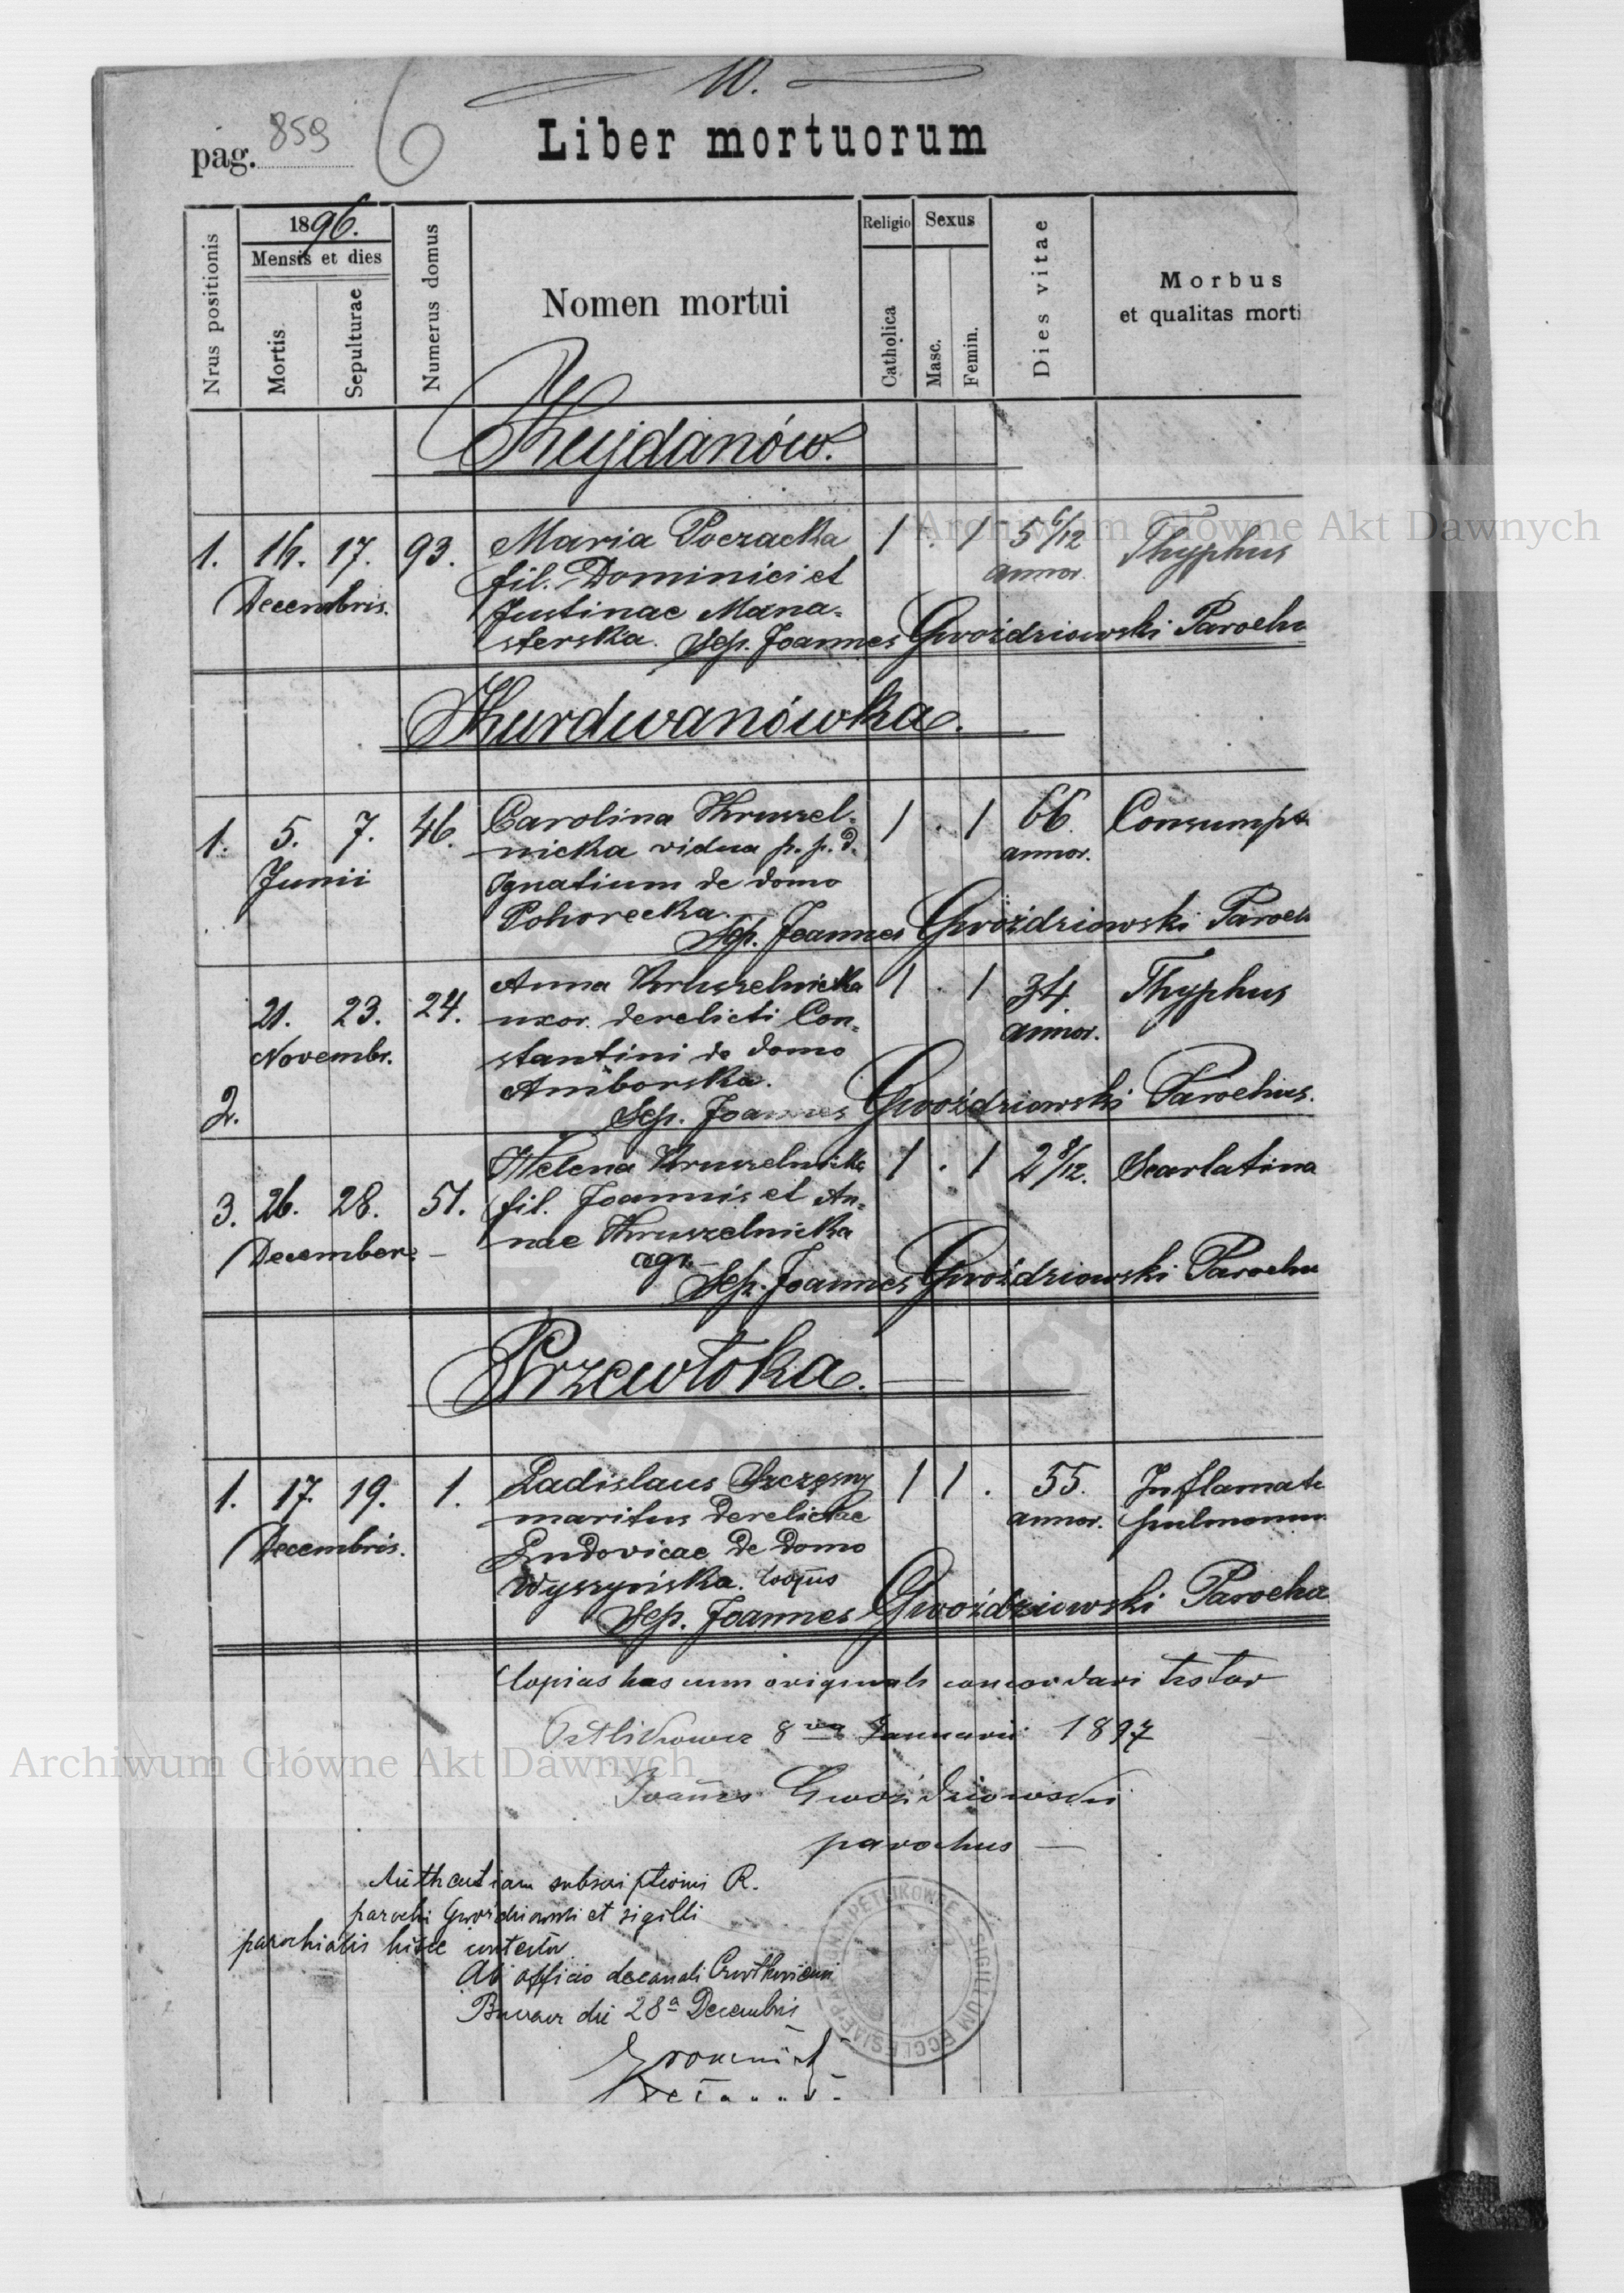 10.
pag. 859
6
Liber mortuorum
Nrus positionis
1896.
Mensis et dies
Mortis
Sepulturae
Numerus domus
Nomen mortui
Religio
Catholica
Sexus
Masc.
Femin.
Dies vitae
Morbus
et qualitas morti
Kujdanów.
1. 16. 17. 93. Maria Poczacka 1 . 1 5 6/12 Thyphus
Decembris. fil. Dominici et annor.
Justinae Mana-
sterska. Sep. Joannes Gwoździowski Parochu
Kurdwanówka.
1. 5. 7. 46. Carolina Kruszel- 1 . 1 66. Consumpt
Junii nicka vidua p. p. d. annor.
Ignatium de domo
Pohorecka.
Sep. Joannes Gwoździowski Paroch
21. 23. 24. Anna Kruszelnicka 1 . 1 34. Thyphus
Novembr. uxor. derelicti Con- annor.
stantini de domo
2. Amborska.
Sep. Joannes Gwoździowski Parochus.
Helena Kruszelnicka 1 . 1 2 8/12. Scarlatina
3. 26. 28. 51. fil. Joannis et An-
December. nae Kruszelnicka
agr.
Sep. Joannes Gwoździowski Parochu
Przewłoka.
1. 17. 19. 1. Ladislaus Szczęsny 1 1 . 55. Inflamatio
Decembris. maritus derelictae annor. pulmonum
Ludovicae de domo
Wyszyńska.
Sep. Joannes Gwoździowski Parochu
Copias has cum originali concordari testor
Petlikowce 8va Januarii 1897
Joannes Gwoździowski
parochus
Authentiam subscriptionis R.
parochi Gwoździowski et sigilli
parochialis hisce contestor
Ab officio decanali
Buczacz die 28a Decembris
SIGILLUM ECCLESIAE PAROCH. PETLIKOWCE
Archiwum Główne Akt Dawnych
Archiwum Główne Akt Dawnych